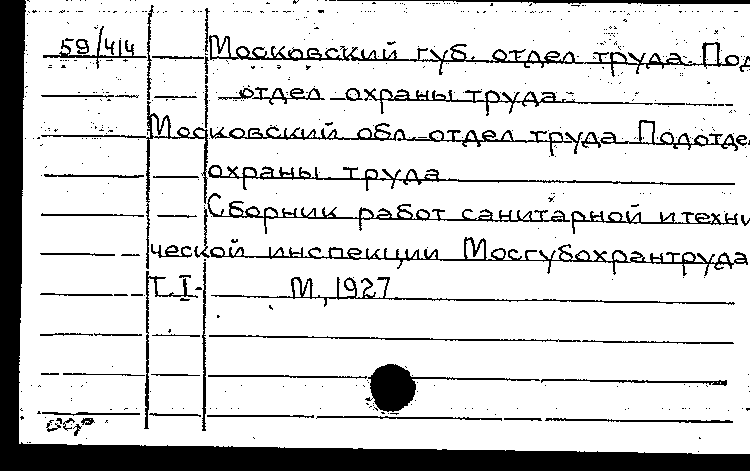 59/414 Московский губ. отдел труда. Под
отдел охраны труда.
Московский обл. отдел труда. Подотде
охраны труда
Сборник работ санитарной и техни
ческой инспекции Мосгубохрантруда
Т.I- М., 1927